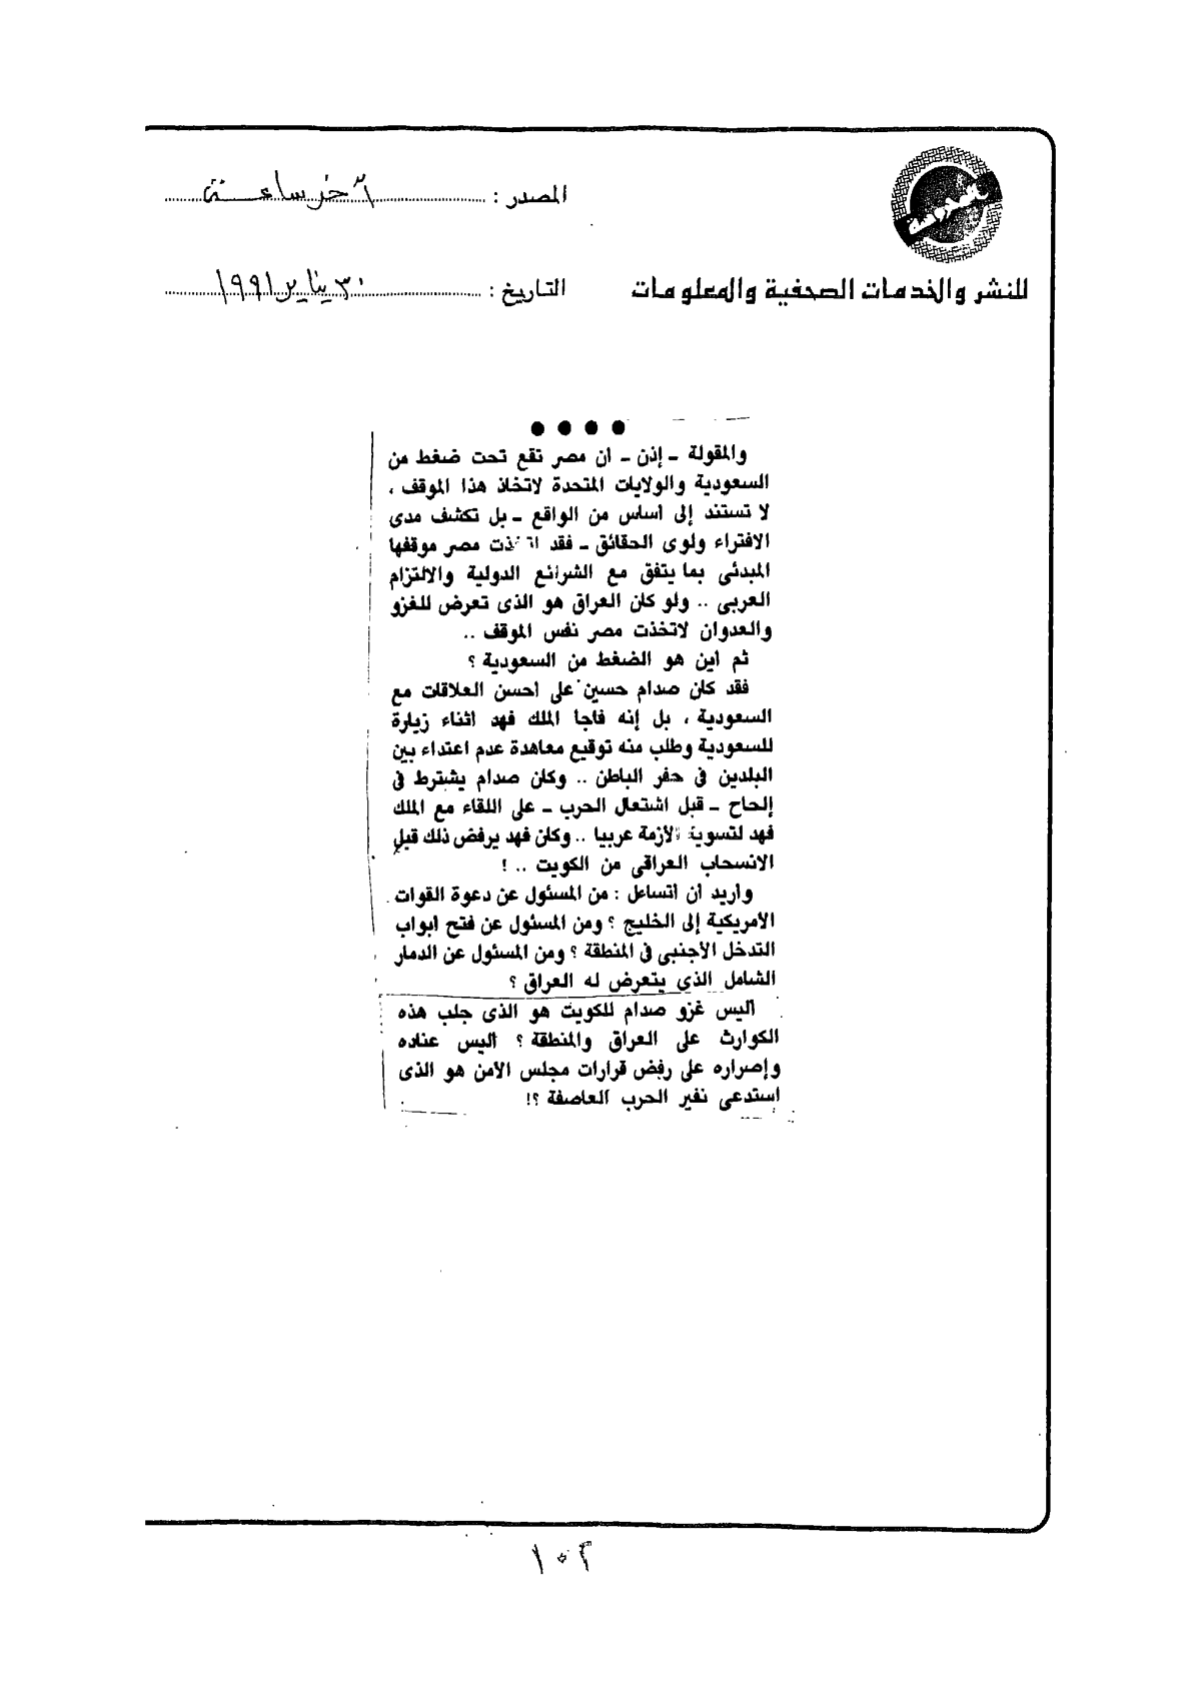 المصدر : آخر ساعة
للنشر والخدمات الصحفية والمعلومات
التاريخ : ٣٠ يناير ١٩٩١
والمقولة ـ إذن ـ ان مصر تقع تحت ضغط من
السعودية والولايات المتحدة لاتخاذ هذا الموقف ،
لا تستند إلى اساس من الواقع ـ بل تكشف مدى
الافتراء ولوى الحقائق ـ فقد اتخذت مصر موقفها
المبدئى بما يتفق مع الشرائع الدولية والالتزام
العربى .. ولو كان العراق هو الذى تعرض للغزو
والعدوان لاتخذت مصر نفس الموقف ..
ثم اين هو الضغط من السعودية ؟
فقد كان صدام حسين على احسن العلاقات مع
السعودية ، بل إنه فاجا الملك فهد اثناء زيارة
للسعودية وطلب منه توقيع معاهدة عدم اعتداء بين
البلدين فى حفر الباطن .. وكان صدام يشترط فى
إلحاح ـ قبل اشتعال الحرب ـ على اللقاء مع الملك
فهد لتسوية الازمة عربيا .. وكان فهد يرفض ذلك قبل
الانسحاب العراقى من الكويت .. !
واريد ان اتساعل : من المسئول عن دعوة القوات
الامريكية إلى الخليج ؟ ومن المسئول عن فتح ابواب
التدخل الأجنبى فى المنطقة ؟ ومن المسئول عن الدمار
الشامل الذي يتعرض له العراق ؟
اليس غزو صدام للكويت هو الذى جلب هذه
الكوارث على العراق والمنطقة ؟ اليس عناده
وإصراره على رفض قرارات مجلس الامن هو الذى
استدعى نفير الحرب العاصفة ؟!
١٠٢